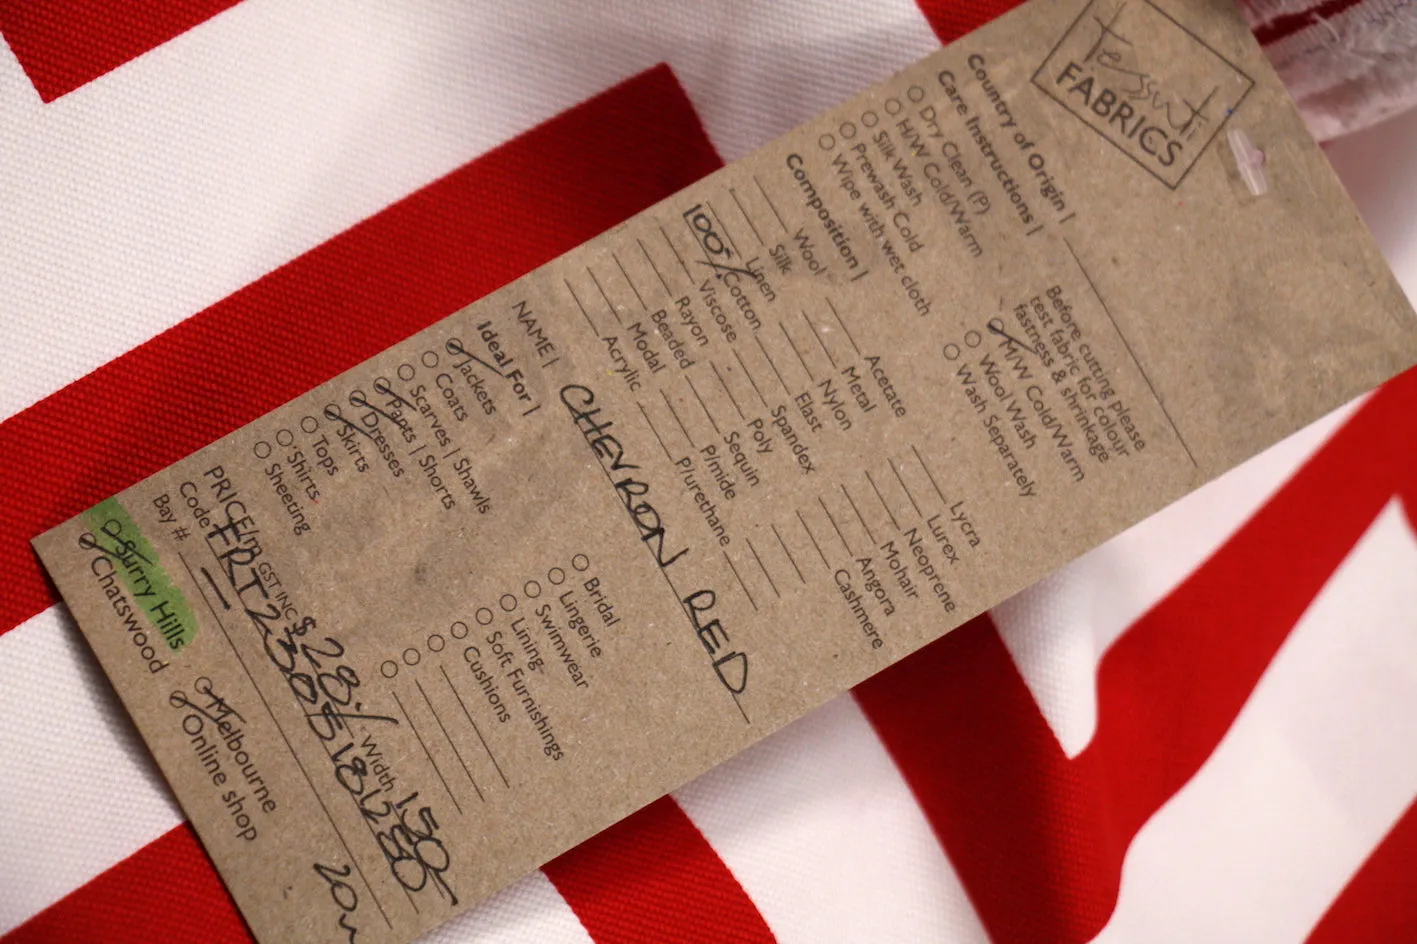 Tessuti
FABRICS
Country of Origin |
Care Instructions |
Dry Clean (P)
H/W Cold/Warm
Silk Wash
Prewash Cold
Wipe with wet cloth
Before cutting please
test fabric for colour
fastness & shrinkage
M/W Cold/Warm
Wool Wash
Wash Separately
Composition |
Wool
Silk
Linen
100% Cotton
Viscose
Rayon
Beaded
Modal
Acrylic
Acetate
Metal
Nylon
Elast
Spandex
Poly
Sequin
P/mide
P/urethane
Lycra
Lurex
Neoprene
Mohair
Angora
Cashmere
NAME | CHEVRON RED
Ideal For |
Jackets
Coats
Scarves | Shawls
Pants | Shorts
Dresses
Skirts
Tops
Shirts
Sheeting
Bridal
Lingerie
Swimwear
Lining
Soft Furnishings
Cushions
PRICE/m GST INC $ 28 Width 150
Code
Bay #
Surry Hills
Chatswood
Melbourne
Online shop